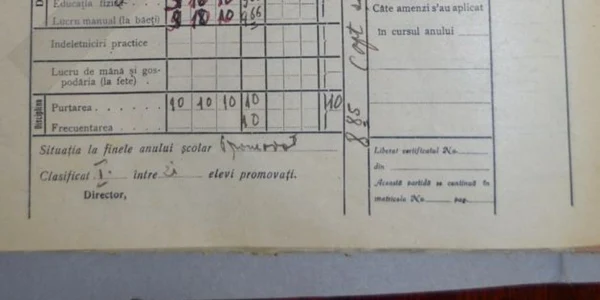 Educația fizică
Lucru manual (la băeți) 8 10 10 9,66
Indeletniciri practice
Lucru de mână și gos-
podăria (la fete)
Disciplina
Purtarea . . . . . . . 10 10 10 10 10
Frecuentarea 10
Situația la finele anului școlar promovat
Clasificat I. între elevi promovați.
Director,
8,85
Câte amenzi s'au aplicat
în cursul anului
Liberat certificatul No.
din
Această partidă se continuă în
matricola No. pag.